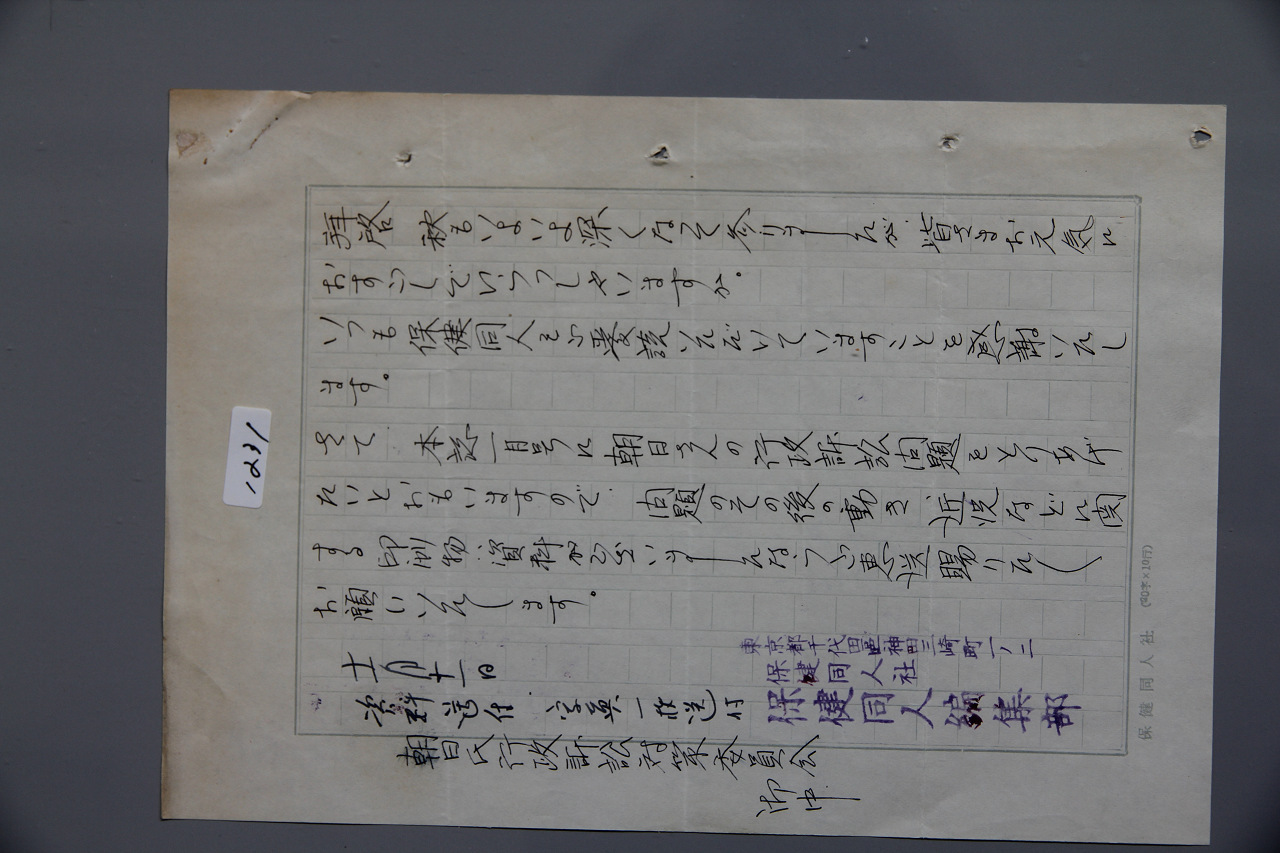 拝啓 秋もいよいよ深くなって参りましたが 皆さまお元気に
おすごしでいらっしゃいますか。
いつも保健同人をご愛読いただいていますことを感謝いたし
ます。
さて 本誌一月号に朝日さんの行政訴訟問題をとりあげ
たいとおもいますので 問題のその後の動き 近況などに関
する印刷物 資料がございましたならご恵送賜りたく
お願いいたします。
十一月十一日
東京都千代田区神田三崎町一ノ二
保健同人社
保健同人編集部
資料送付 写真一枚送付
朝日氏行政訴訟対策委員会
御中
保健同人社 (20字×10行)
1231